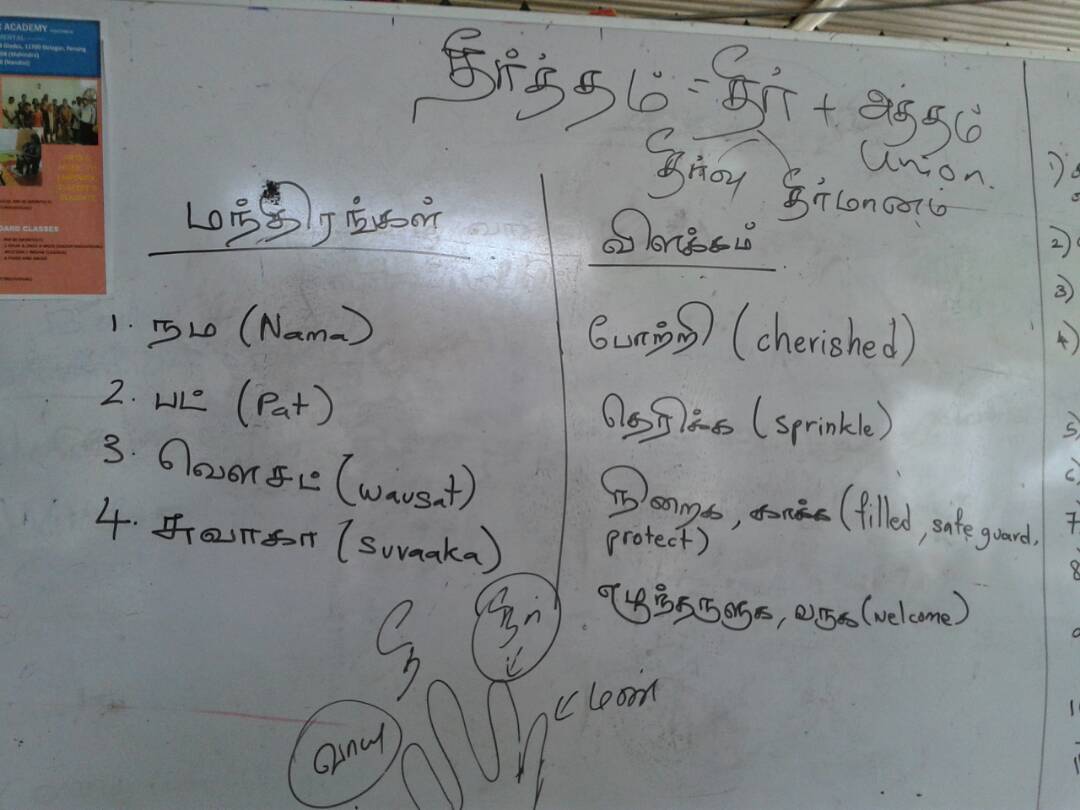 ACADEMY
11700 Gelugor, Penang
தீர்த்தம் = தீர் + அத்தம்
தீர்வு தீர்மானம் Union.
மந்திரங்கள் விளக்கம்
1. நம (Nama) போற்றி (cherished)
2. பட் (Pat) தெரிக்க (sprinkle)
3. வௌசட் (Wausat) நிறைக, காக்க (filled, safe guard,
protect)
4. சுவாகா (Suvaaka) எழுந்தருளுக, வருக (welcome)
தீ நீர்
மண்
வாயு
1)
2)
3)
4)
5)
6)
7
8